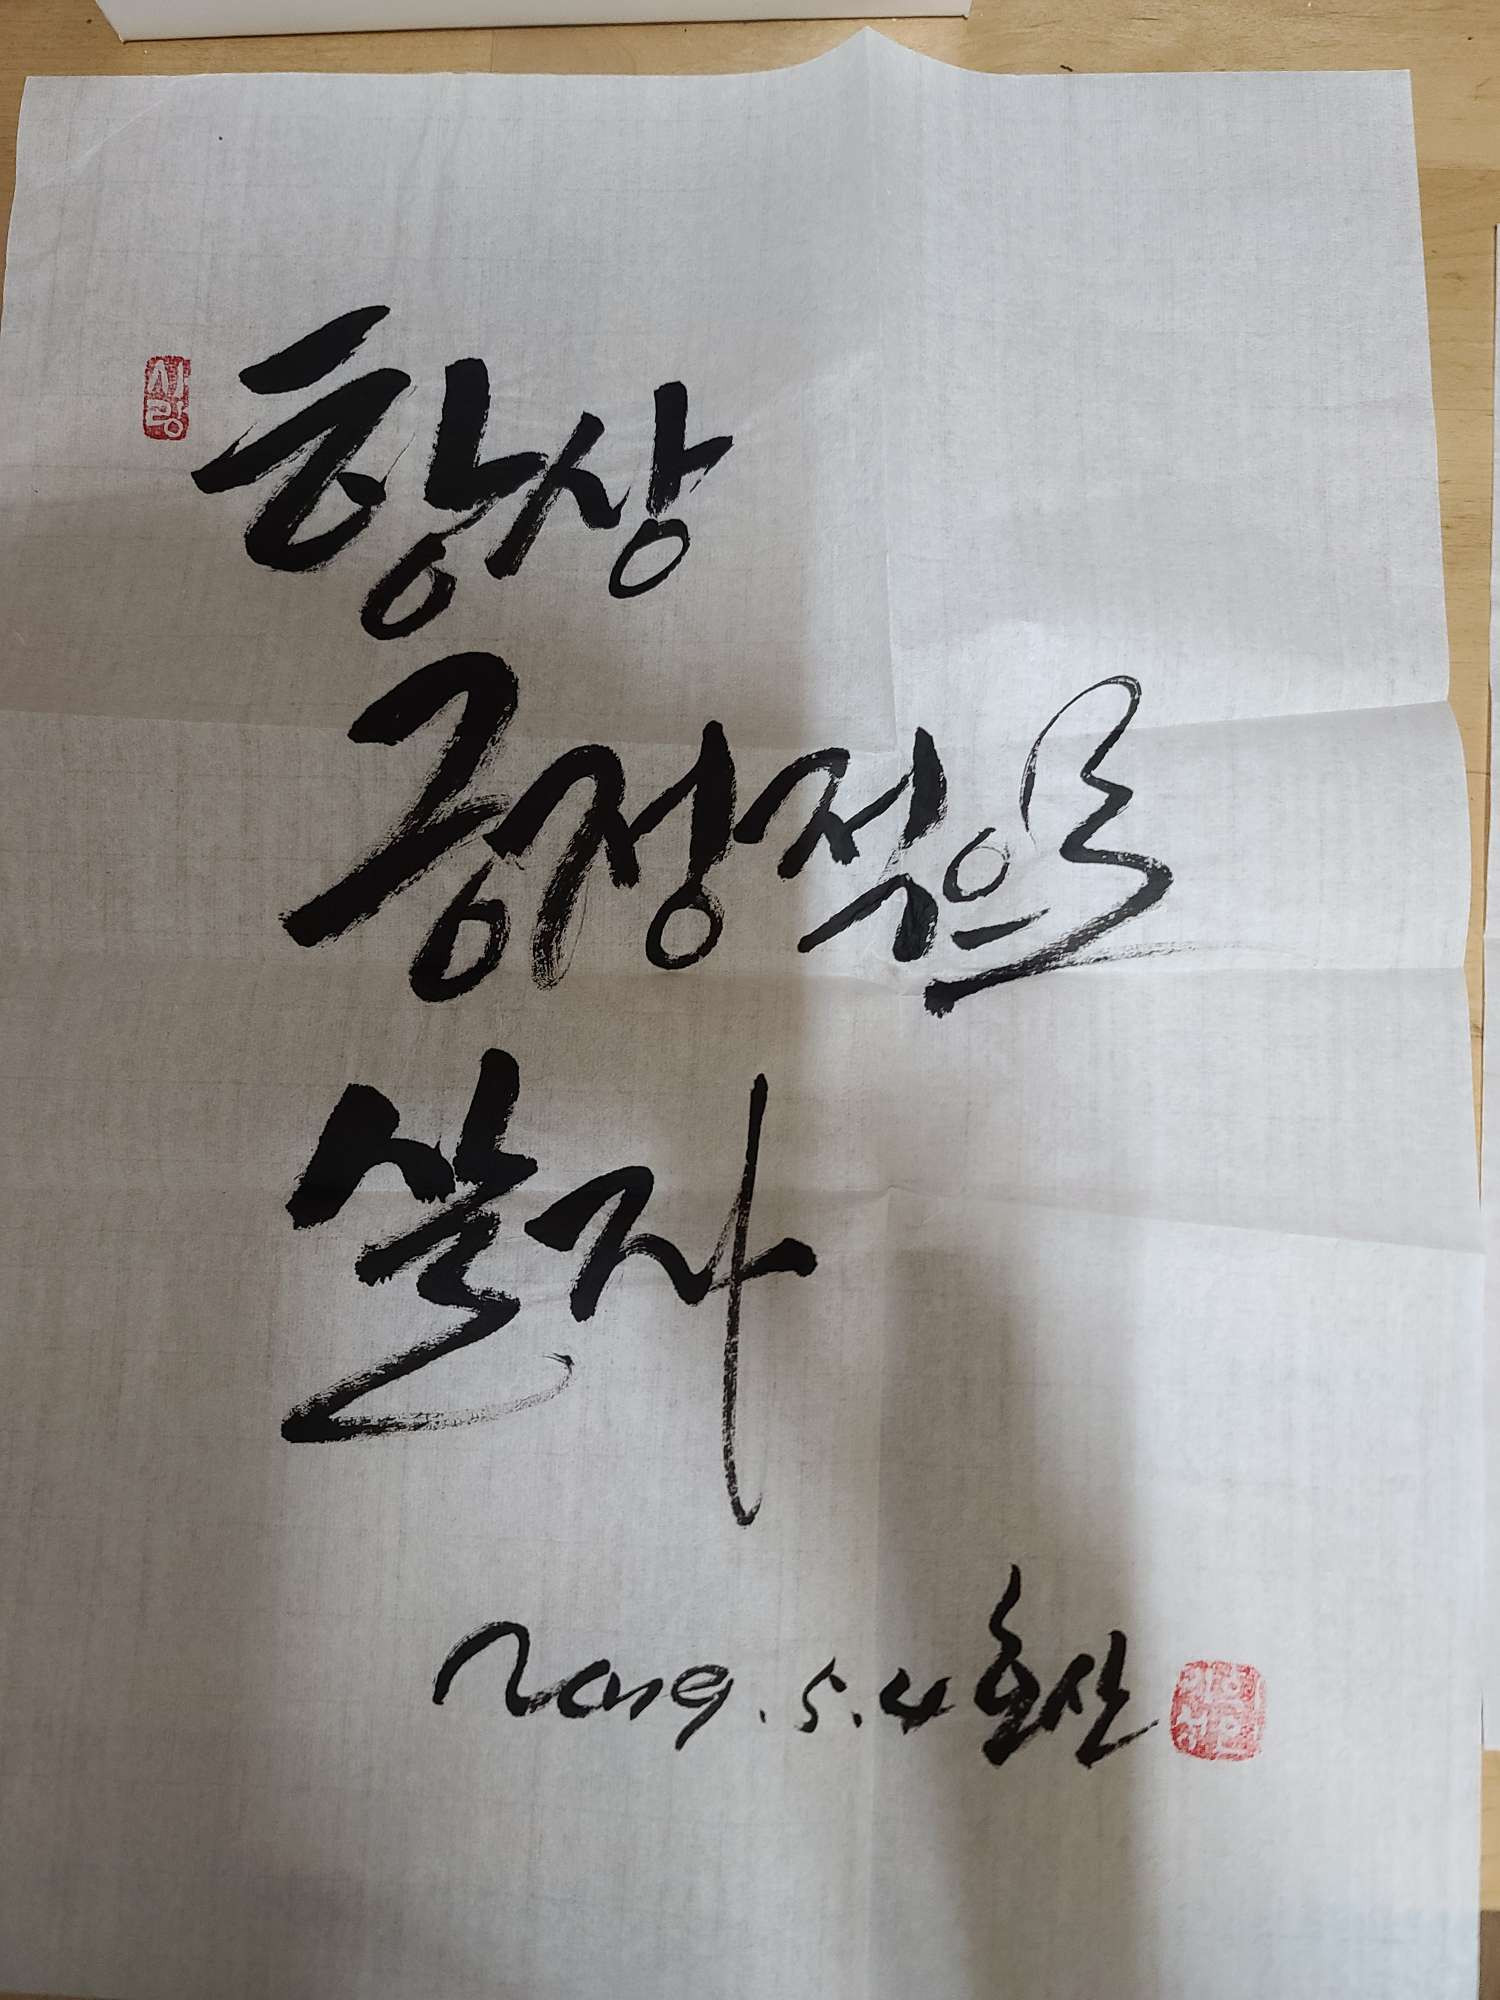 사랑
항상
긍정적으로
살자
2019.5.4 효산